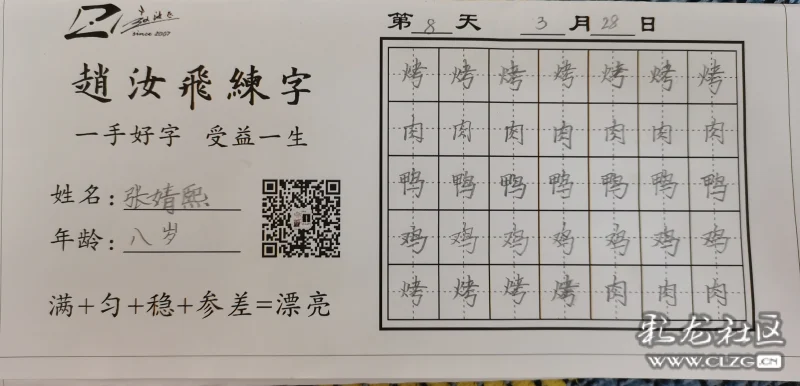 赵汝飞
since 2007
趙汝飛練字
一手好字 受益一生
姓名：张婧熙
年龄：八岁
满+匀+稳+参差=漂亮
第8天 3月28日
烤烤烤烤烤烤烤
肉肉肉肉肉肉肉
鸭鸭鸭鸭鸭鸭鸭
鸡鸡鸡鸡鸡鸡鸡
烤烤烤烤肉肉肉
彩龙社区
WWW.CLZG.CN